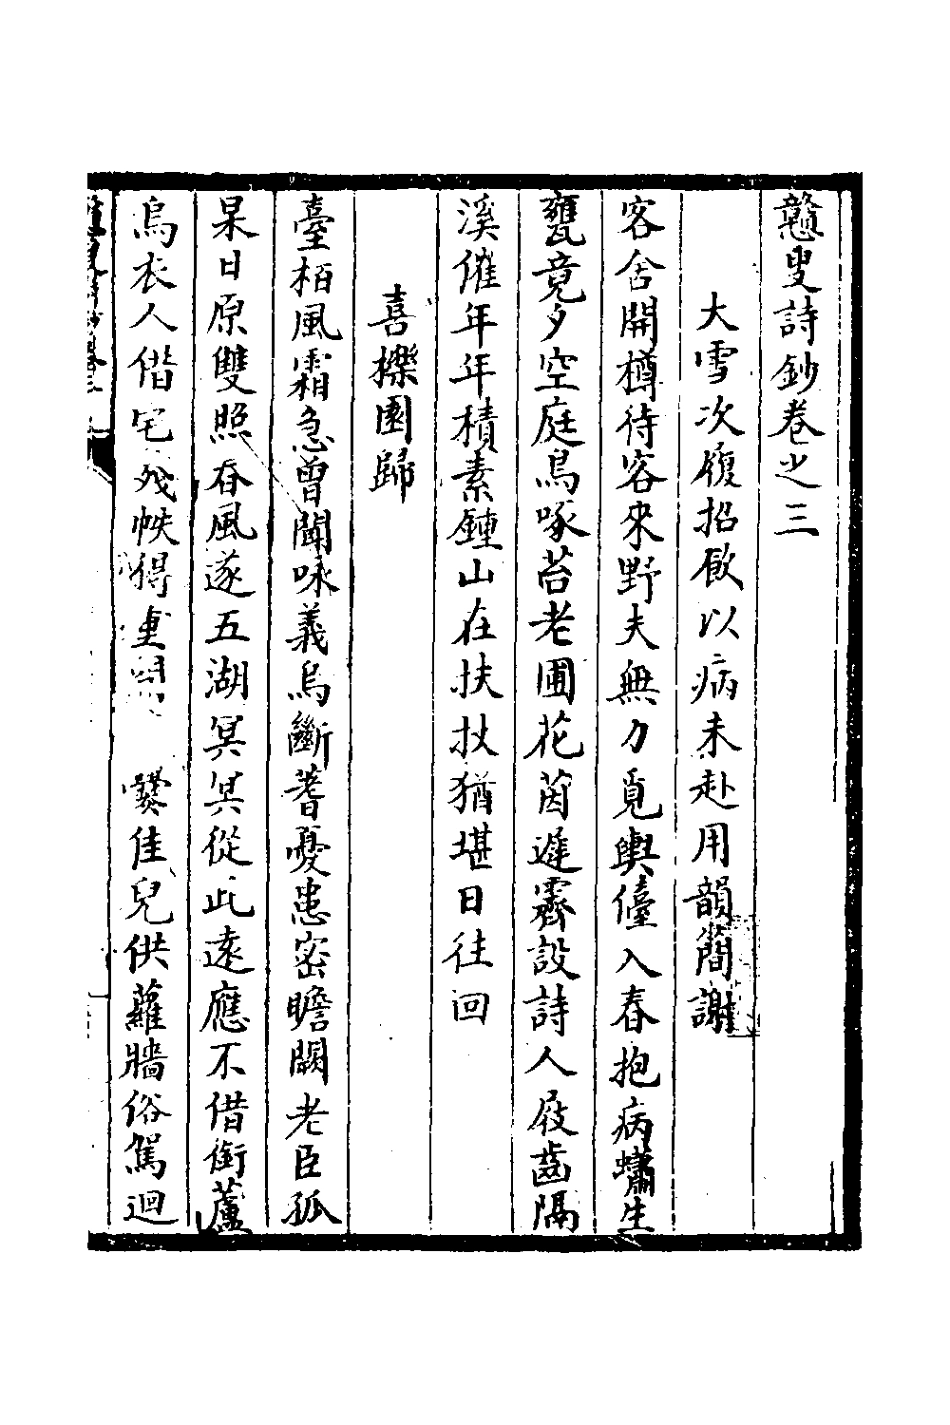 戇叟詩鈔卷之三
大雪次復招飲以病未赴用韻簡謝
客舍開樽待客來野夫無力覓輿儓入春抱病蠨生
甕竟夕空庭鳥啄苔老圃花茵遲霽設詩人屐齒隔
溪催年年積素鍾山在扶杖猶堪日往回
喜櫟園歸
臺栢風霜急曾聞咏義烏斷蓍憂患密瞻闕老臣孤
杲日原雙照春風遂五湖冥冥從此遠應不借銜蘆
烏衣人借宅殘帙得重 爨佳兒供蘿牆俗駕迴